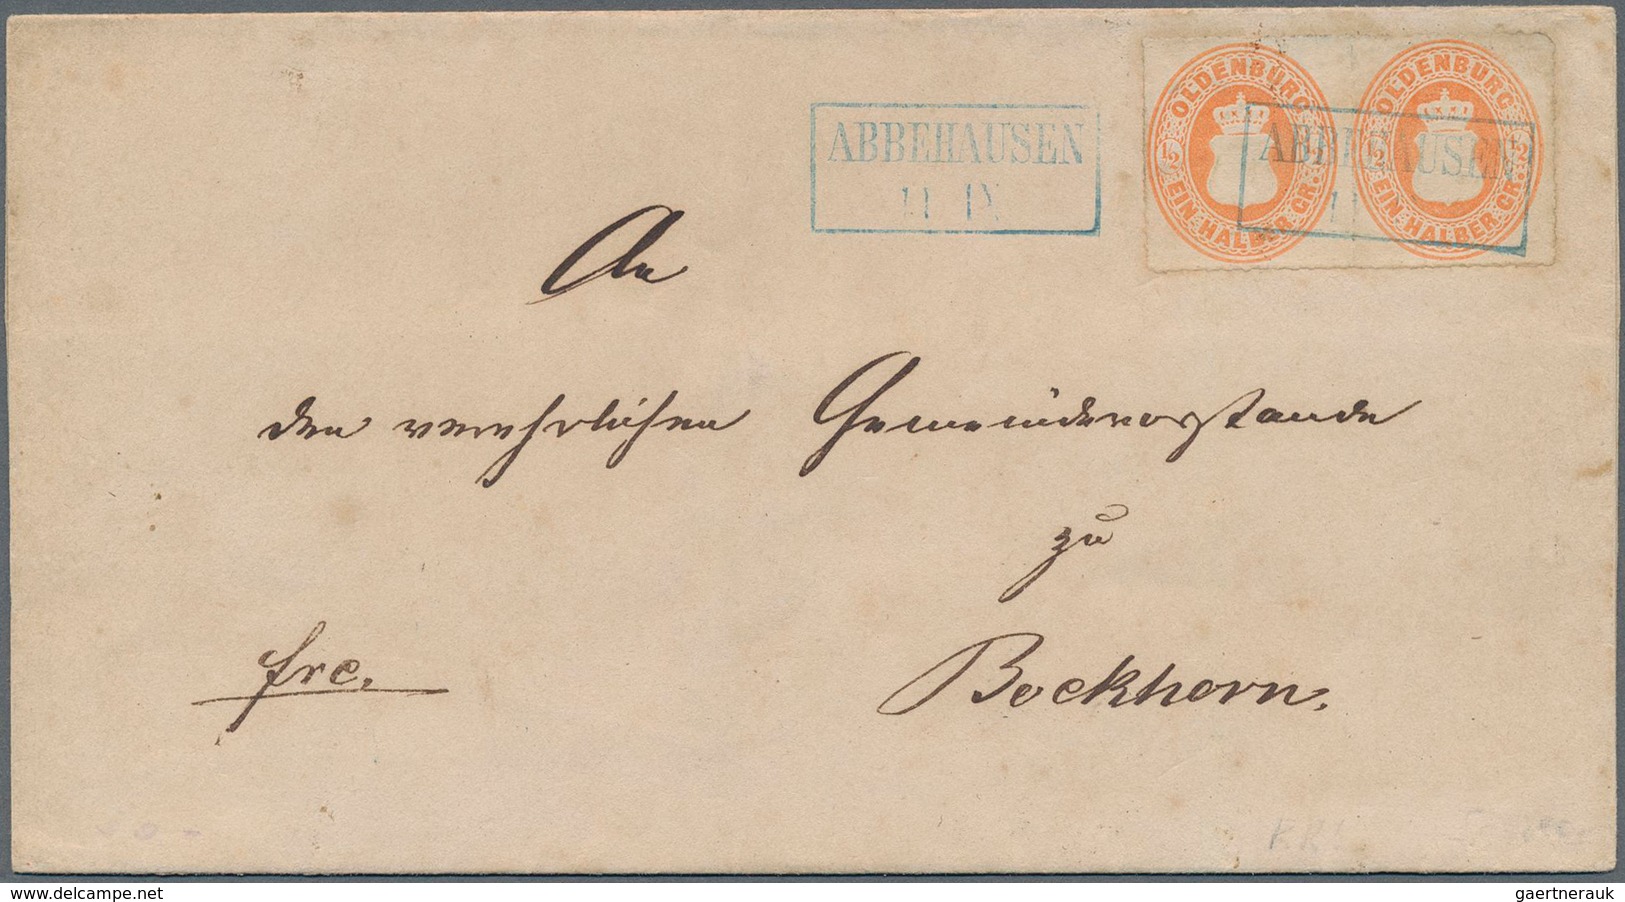 OLDENBURG
1/2 1/2
EIN HALBER GR.
OLDENBURG
1/2 1/2
EIN HALBER GR.
ABBEHAUSEN
11 IX
ABBEHAUSEN
11
An
den verehrlichen Gemeindevorstande
zu
Bockhorn.
frc.
RR!
delcampe.net
gaertnerauk